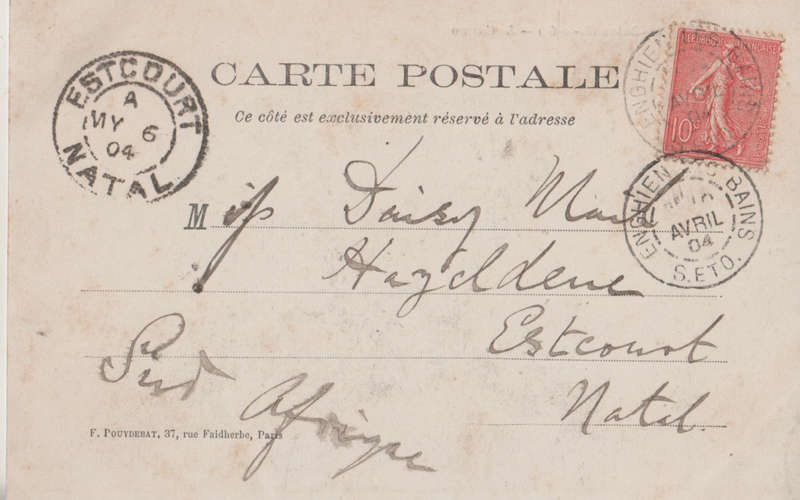 CARTE POSTALE
Ce côté est exclusivement réservé à l'adresse
ESTCOURT
A
MY 6
04
NATAL
REPUBLIQUE FRANÇAISE
10c
ENGHIEN
AVRIL
04
ENGHIEN LES BAINS
AVRIL
04
S.ETO.
Miss Daisy
Hazeldene
Estcourt
Natal.
Sud Afrique
F. POUYDEBAT, 37, rue Faidherbe, Paris